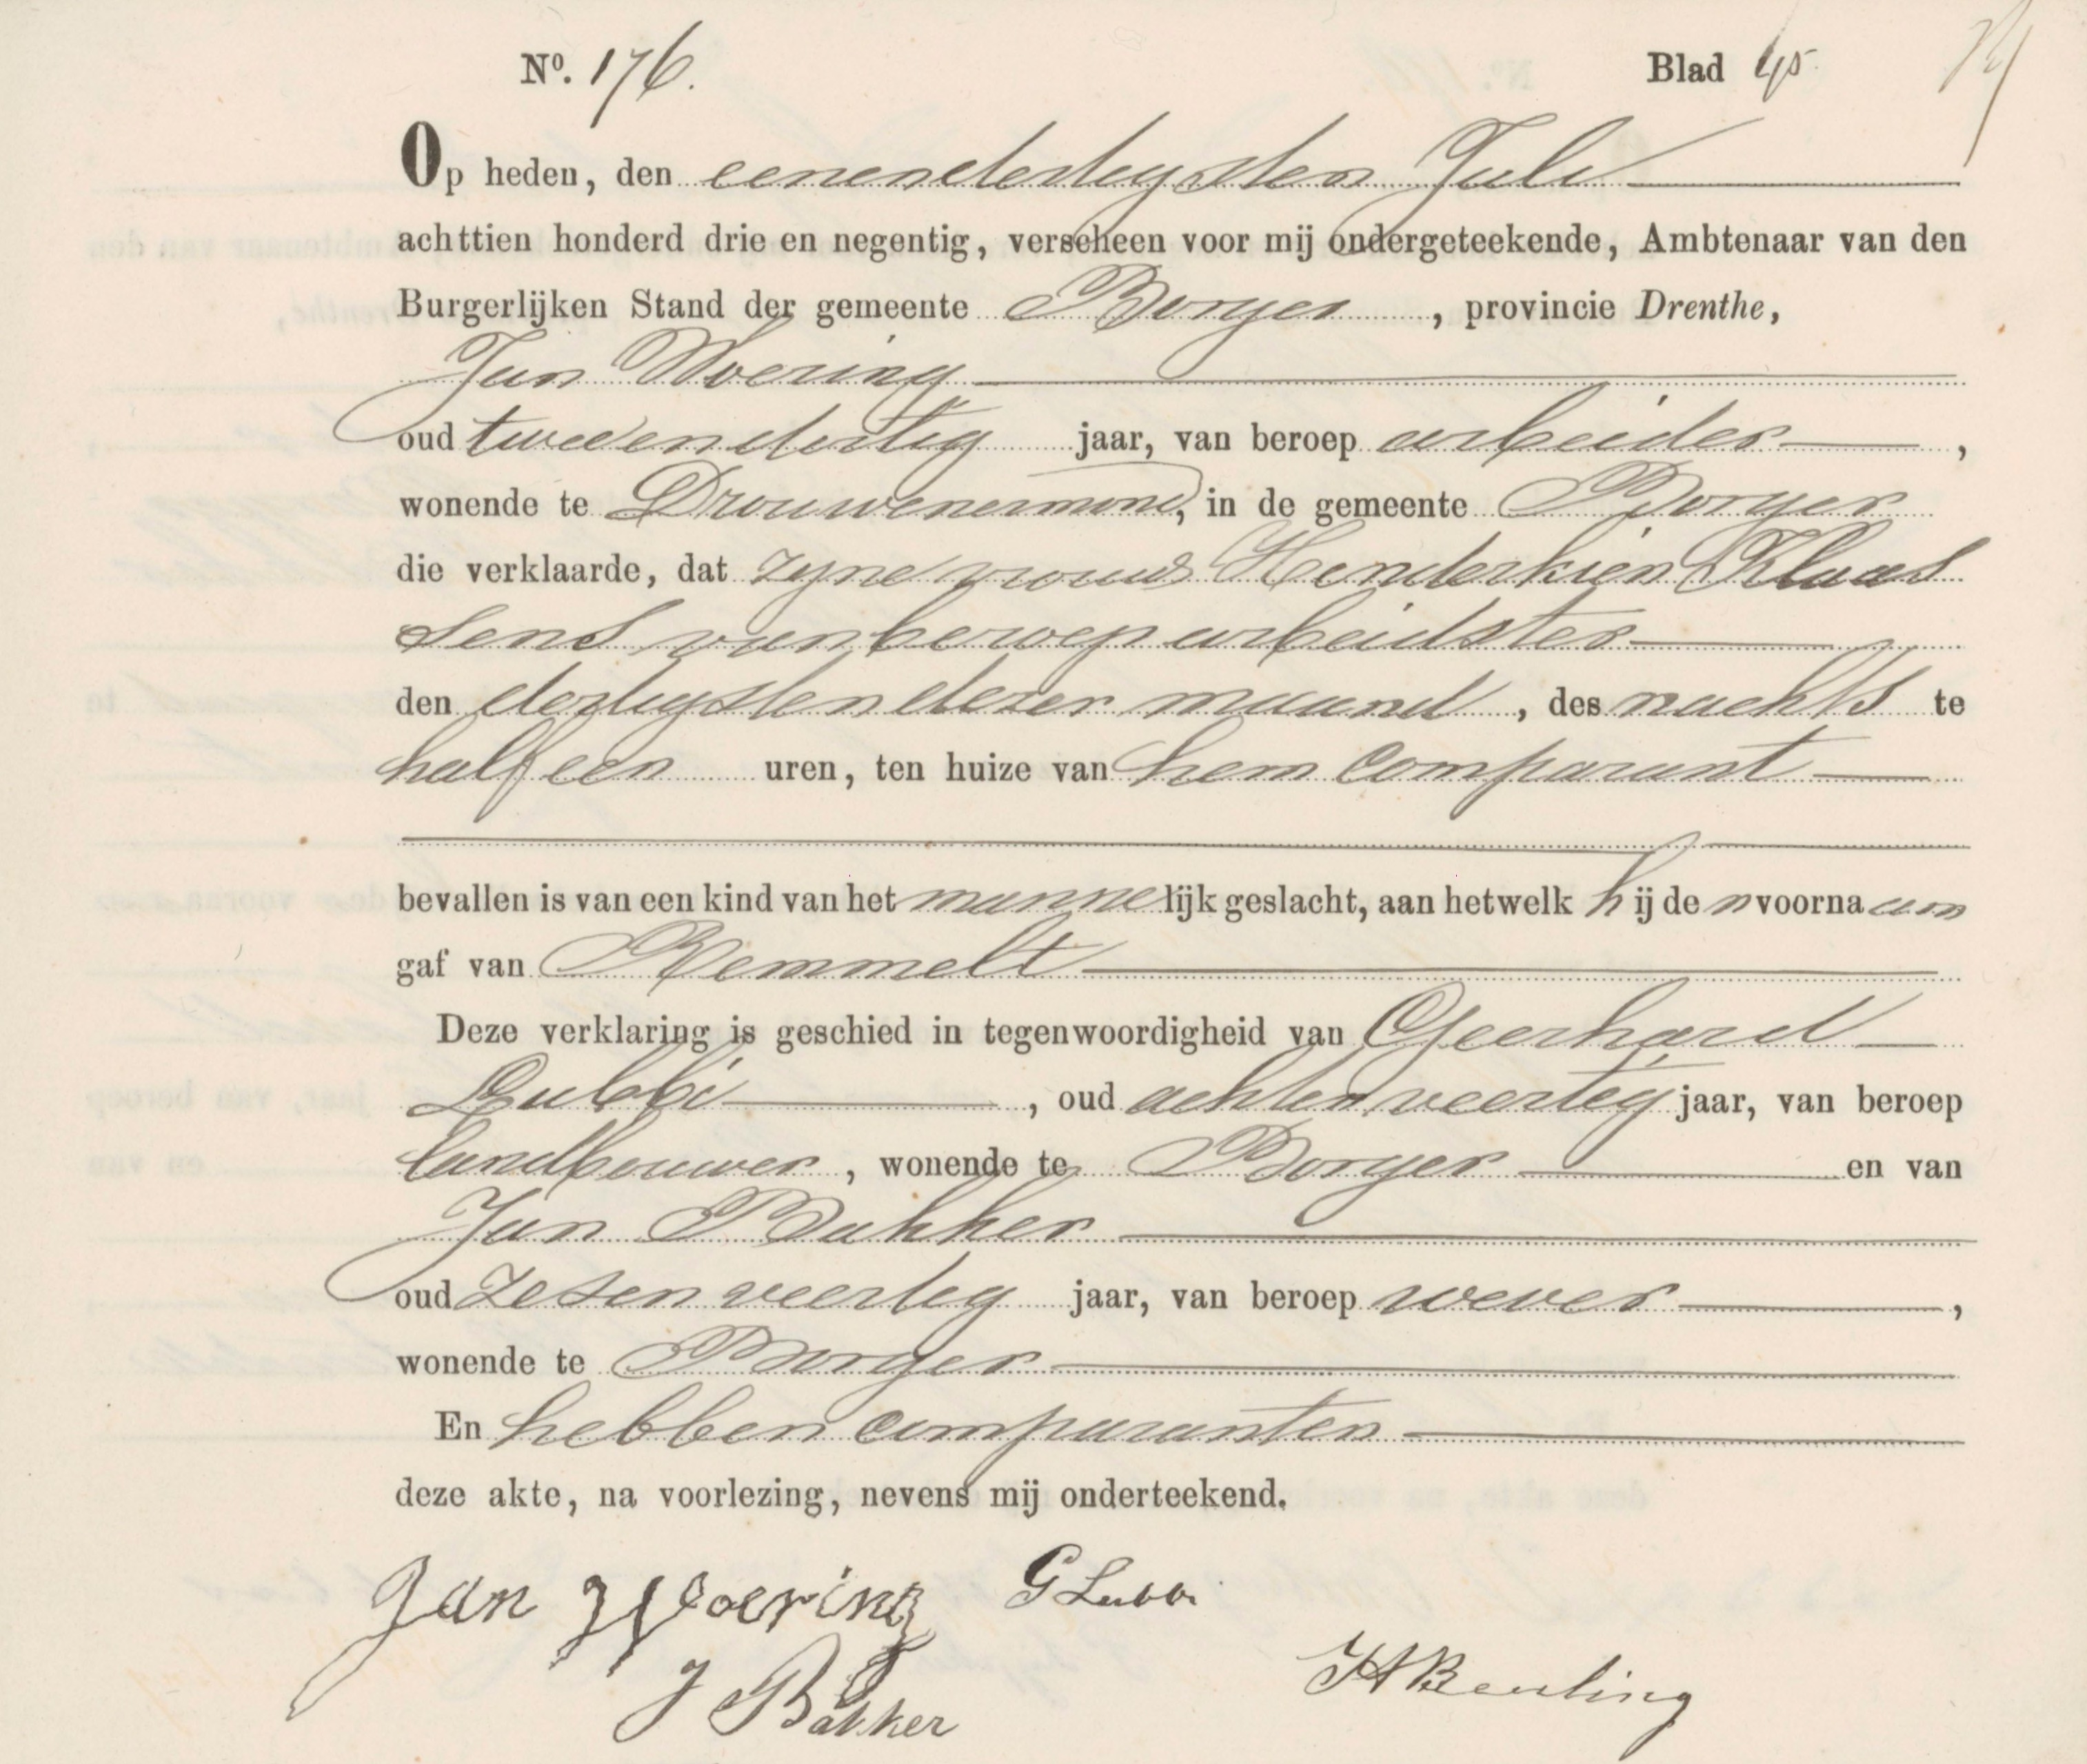 Nº. 176. Blad 45
Op heden, den eenendertigsten Juli
achttien honderd drie en negentig, verscheen voor mij ondergeteekende, Ambtenaar van den
Burgerlijken Stand der gemeente Borger, provincie Drenthe,
Jan Woering
oud tweeendertig jaar, van beroep arbeider,
wonende te Drouwenermond, in de gemeente Borger
die verklaarde, dat zyne vrouw Henderkien Klaas
sens van beroep arbeidster
den dertigsten dezer maand, des nachts te
half een uren, ten huize van hem comparant
bevallen is van een kind van het mannelijk geslacht, aan hetwelk hij den voornaam
gaf van Remmelt
Deze verklaring is geschied in tegenwoordigheid van Geerhard
Lubbi, oud achtenveertig jaar, van beroep
landbouwer, wonende te Borger en van
Jan Bakker
oud zesenveertig jaar, van beroep wever,
wonende te Borger
En hebben comparanten
deze akte, na voorlezing, nevens mij onderteekend.
Jan Woering G Lubbi
J Bakker